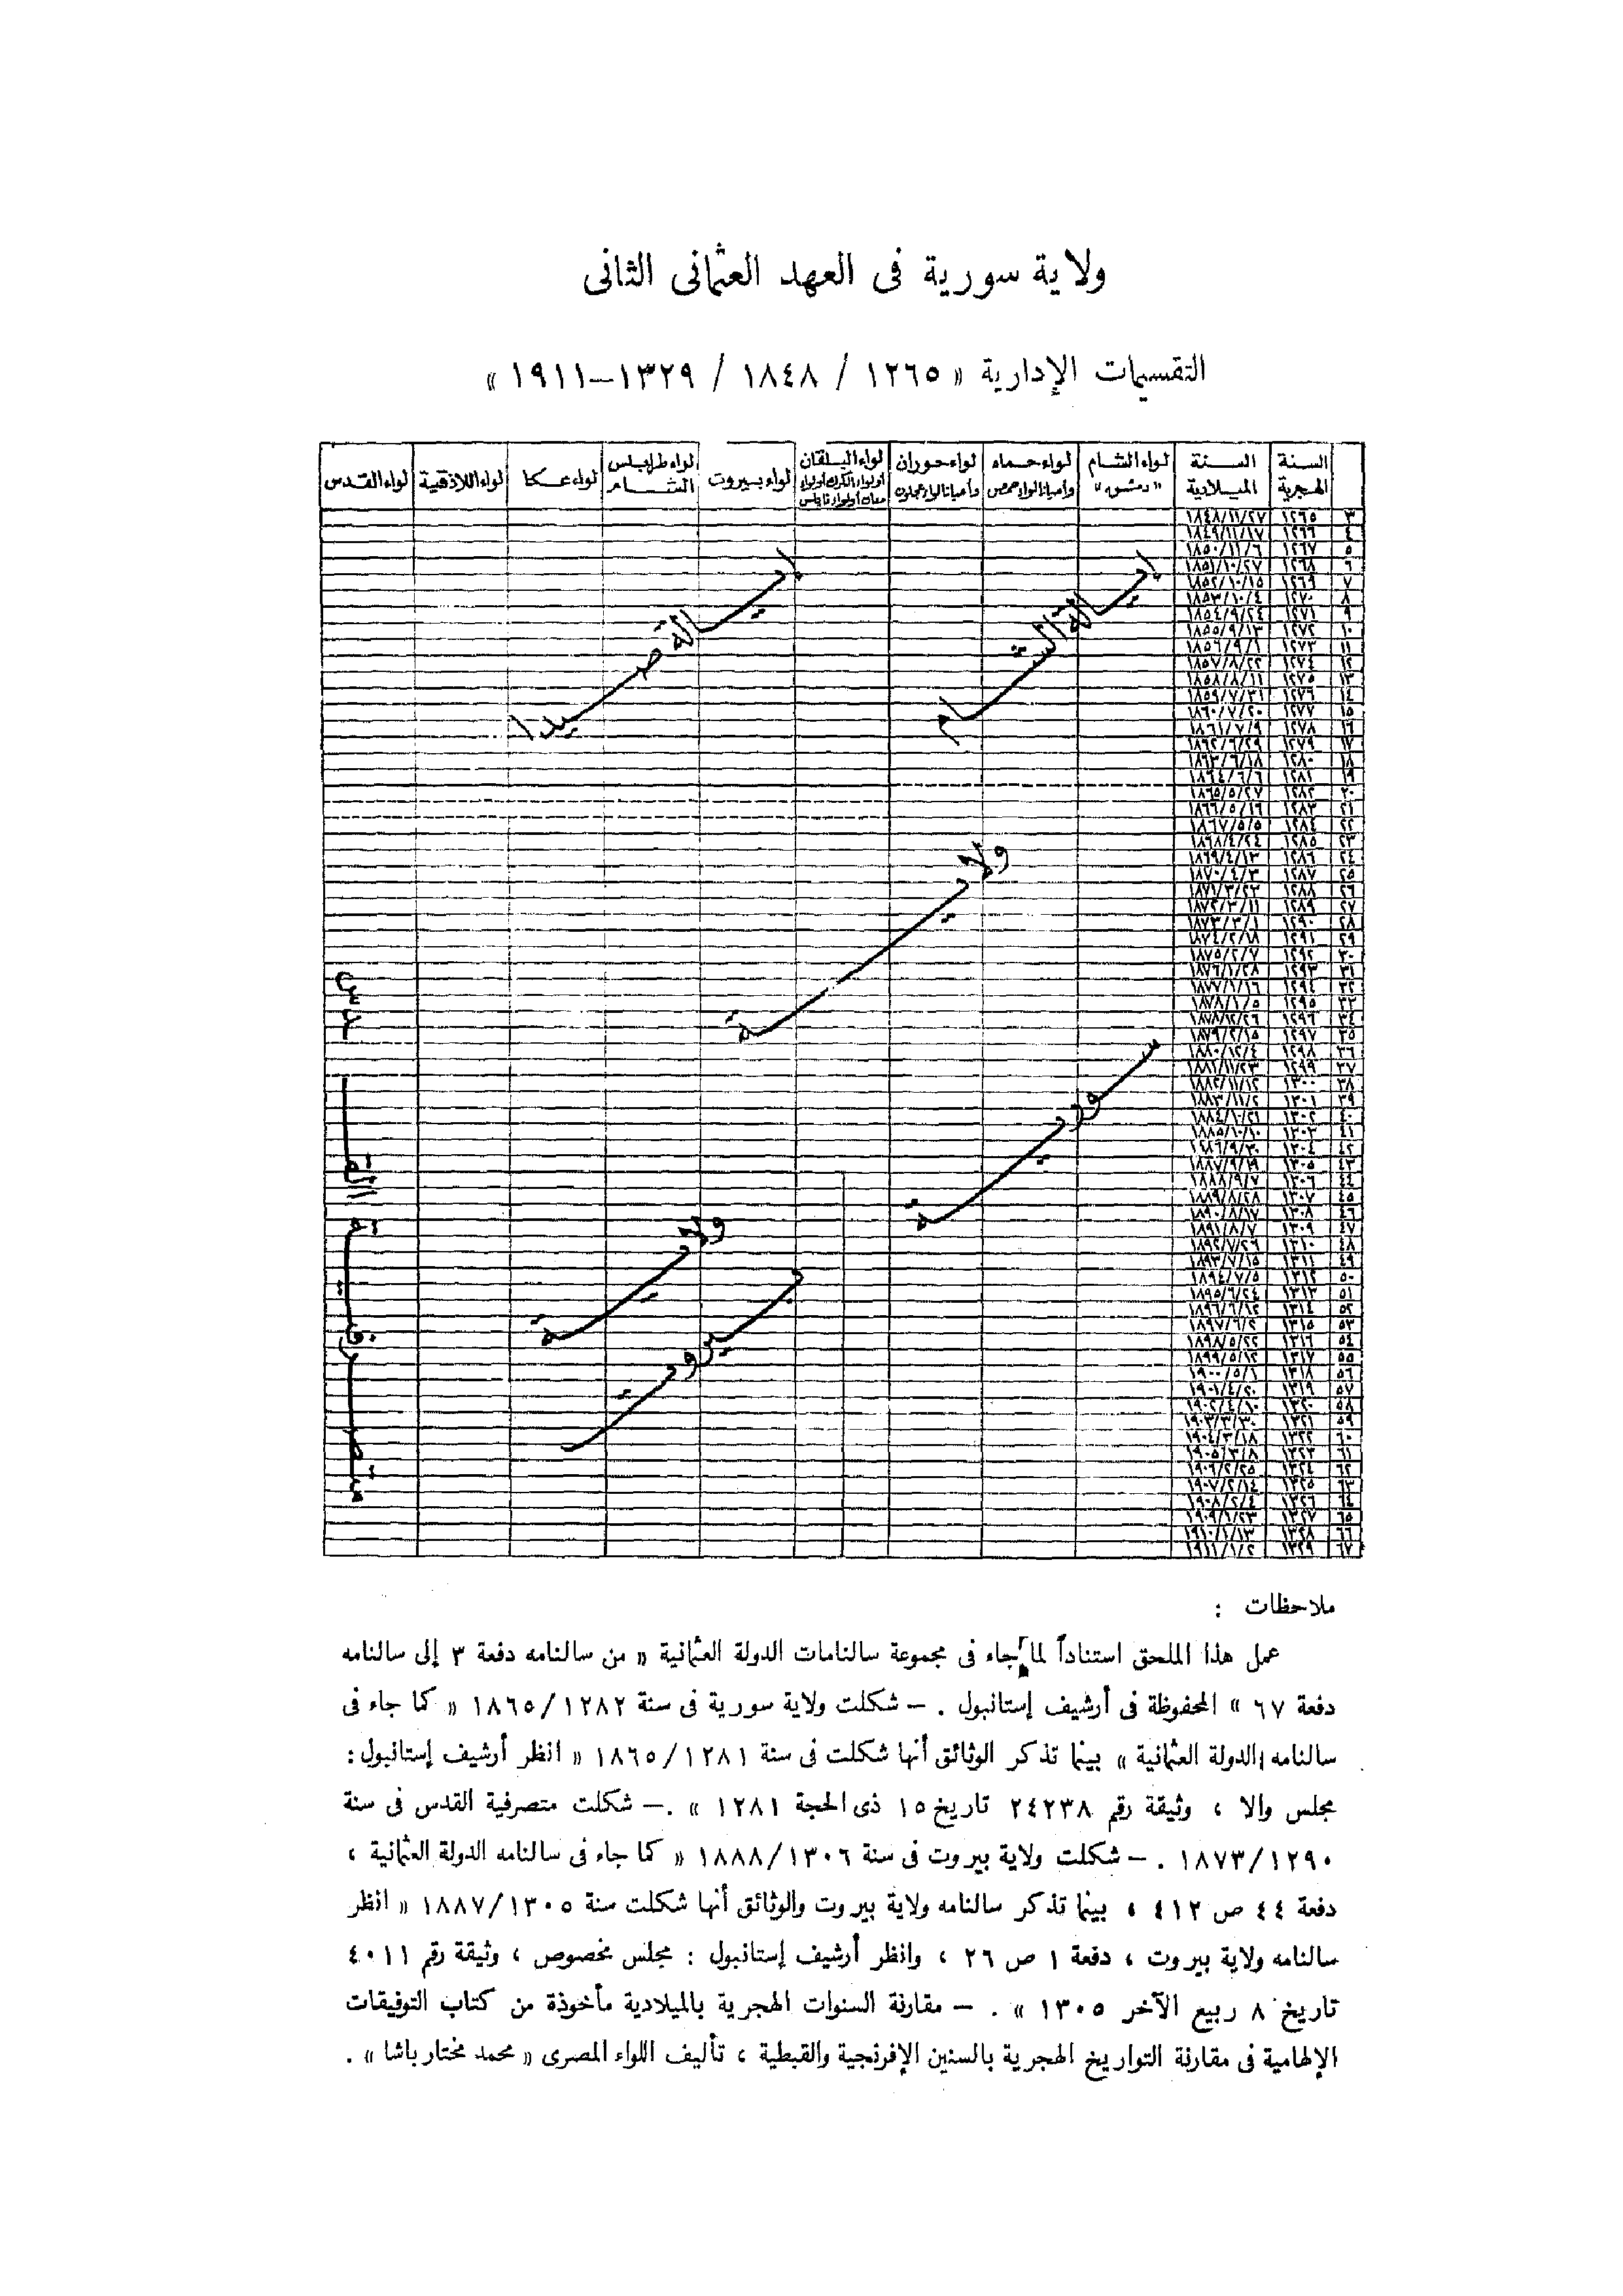 ولاية سورية فى العهد العثمانى الثانى
التقسيمات الإدارية « ١٢٦٥ / ١٨٤٨ / ١٣٢٩–١٩١١ »
السنة الهجرية
السنة الميلادية
لواء الشام «دمشق»
لواء حماه وأحيانا لواء حمص
لواء حوران وأحيانا لواء عجلون
لواء البلقان أو لواء الكرك أو لواء معان أو لواء نابلس
لواء بيروت
لواء طرابلس الشام
لواء عكا
لواء اللاذقية
لواء القدس
٣ ١٢٦٥ ١٨٤٨/١١/٢٧
٤ ١٢٦٦ ١٨٤٩/١١/١٧
٥ ١٢٦٧ ١٨٥٠/١١/٦
٦ ١٢٦٨ ١٨٥١/١٠/٢٧
٧ ١٢٦٩ ١٨٥٢/١٠/١٥
٨ ١٢٧٠ ١٨٥٣/١٠/٤
٩ ١٢٧١ ١٨٥٤/٩/٢٤
١٠ ١٢٧٢ ١٨٥٥/٩/١٣
١١ ١٢٧٣ ١٨٥٦/٩/١
١٢ ١٢٧٤ ١٨٥٧/٨/٢٢
١٣ ١٢٧٥ ١٨٥٨/٨/١١
١٤ ١٢٧٦ ١٨٥٩/٧/٣١
١٥ ١٢٧٧ ١٨٦٠/٧/٢٠
١٦ ١٢٧٨ ١٨٦١/٧/٩
١٧ ١٢٧٩ ١٨٦٢/٦/٢٩
١٨ ١٢٨٠ ١٨٦٣/٦/١٨
١٩ ١٢٨١ ١٨٦٤/٦/٦
٢٠ ١٢٨٢ ١٨٦٥/٥/٢٧
٢١ ١٢٨٣ ١٨٦٦/٥/١٦
٢٢ ١٢٨٤ ١٨٦٧/٥/٥
٢٣ ١٢٨٥ ١٨٦٨/٤/٢٤
٢٤ ١٢٨٦ ١٨٦٩/٤/١٣
٢٥ ١٢٨٧ ١٨٧٠/٤/٣
٢٦ ١٢٨٨ ١٨٧١/٣/٢٣
٢٧ ١٢٨٩ ١٨٧٢/٣/١١
٢٨ ١٢٩٠ ١٨٧٣/٣/١
٢٩ ١٢٩١ ١٨٧٤/٢/١٨
٣٠ ١٢٩٢ ١٨٧٥/٢/٧
٣١ ١٢٩٣ ١٨٧٦/١/٢٨
٣٢ ١٢٩٤ ١٨٧٧/١/١٦
٣٣ ١٢٩٥ ١٨٧٨/١/٥
٣٤ ١٢٩٦ ١٨٧٨/١٢/٢٦
٣٥ ١٢٩٧ ١٨٧٩/٢/١٥
٣٦ ١٢٩٨ ١٨٨٠/١٢/٤
٣٧ ١٢٩٩ ١٨٨١/١١/٢٣
٣٨ ١٣٠٠ ١٨٨٢/١١/١٢
٣٩ ١٣٠١ ١٨٨٣/١١/٢
٤٠ ١٣٠٢ ١٨٨٤/١٠/٢١
٤١ ١٣٠٣ ١٨٨٥/١٠/١٠
٤٢ ١٣٠٤ ١٨٨٦/٩/٣٠
٤٣ ١٣٠٥ ١٨٨٧/٩/١٩
٤٤ ١٣٠٦ ١٨٨٨/٩/٧
٤٥ ١٣٠٧ ١٨٨٩/٨/٢٨
٤٦ ١٣٠٨ ١٨٩٠/٨/١٧
٤٧ ١٣٠٩ ١٨٩١/٨/٧
٤٨ ١٣١٠ ١٨٩٢/٧/٢٦
٤٩ ١٣١١ ١٨٩٣/٧/١٥
٥٠ ١٣١٢ ١٨٩٤/٧/٥
٥١ ١٣١٣ ١٨٩٥/٦/٢٤
٥٢ ١٣١٤ ١٨٩٦/٦/١٢
٥٣ ١٣١٥ ١٨٩٧/٦/٢
٥٤ ١٣١٦ ١٨٩٨/٥/٢٢
٥٥ ١٣١٧ ١٨٩٩/٥/١٢
٥٦ ١٣١٨ ١٩٠٠/٥/١
٥٧ ١٣١٩ ١٩٠١/٤/٢٠
٥٨ ١٣٢٠ ١٩٠٢/٤/١٠
٥٩ ١٣٢١ ١٩٠٣/٣/٣٠
٦٠ ١٣٢٢ ١٩٠٤/٣/١٨
٦١ ١٣٢٣ ١٩٠٥/٣/٨
٦٢ ١٣٢٤ ١٩٠٦/٢/٢٥
٦٣ ١٣٢٥ ١٩٠٧/٢/١٤
٦٤ ١٣٢٦ ١٩٠٨/٢/٤
٦٥ ١٣٢٧ ١٩٠٩/١/٢٣
٦٦ ١٣٢٨ ١٩١٠/١/١٣
٦٧ ١٣٢٩ ١٩١١/١/٢
إيالة الشام
إيالة صيدا
ولاية
سورية
ولاية
بيروت
متصرفية القدس
ملاحظات :
عمل هذا الملحق استناداً لما جاء فى مجموعة سالنامات الدولة العثمانية « من سالنامه دفعة ٣ إلى سالنامه
دفعة ٦٧ » المحفوظة فى أرشيف إستانبول . – شكلت ولاية سورية فى سنة ١٨٦٥/١٢٨٢ « كما جاء فى
سالنامه الدولة العثمانية » بينما تذكر الوثائق أنها شكلت فى سنة ١٨٦٥/١٢٨١ « انظر أرشيف إستانبول :
مجلس والا ، وثيقة رقم ٢٤٢٣٨ تاريخ ١٥ ذى الحجة ١٢٨١ » .– شكلت متصرفية القدس فى سنة
١٨٧٣/١٢٩٠ . – شكلت ولاية بيروت فى سنة ١٨٨٨/١٣٠٦ « كما جاء فى سالنامه الدولة العثمانية ،
دفعة ٤٤ ص ٤١٢ ، بينما تذكر سالنامه ولاية بيروت والوثائق أنها شكلت سنة ١٨٨٧/١٣٠٥ « انظر
سالنامه ولاية بيروت ، دفعة ١ ص ٢٦ ، وانظر أرشيف إستانبول : مجلس مخصوص ، وثيقة رقم ٤٠١١
تاريخ ٨ ربيع الآخر ١٣٠٥ » . – مقارنة السنوات الهجرية بالميلادية مأخوذة من كتاب التوفيقات
الإلهامية فى مقارنة التواريخ الهجرية بالسنين الإفرنجية والقبطية ، تأليف اللواء المصرى « محمد مختار باشا » .